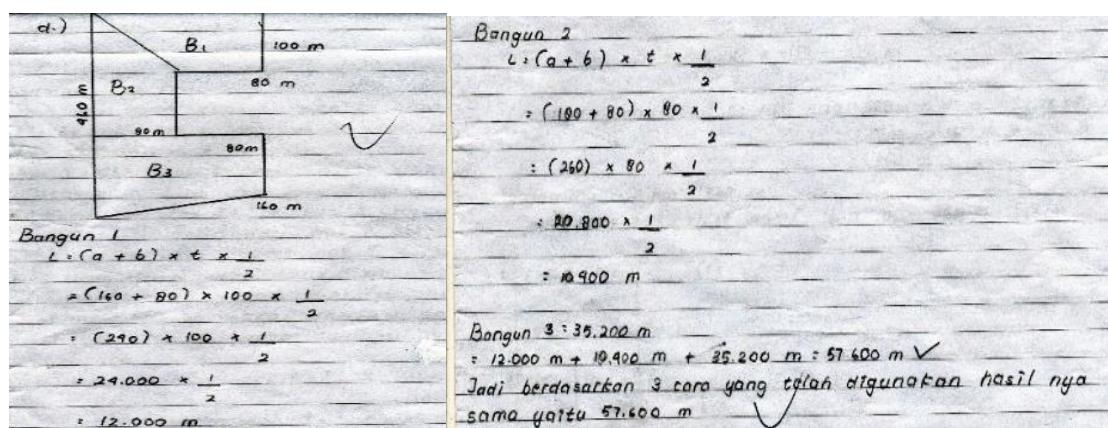 d.)
B1
100 m
80 m
B2
460 m
80m
80m
B3
160 m
Bangun 1
L = (a + b) x t x 1/2
= (160 + 80) x 100 x 1/2
= (240) x 100 x 1/2
= 24.000 x 1/2
= 12.000 m
Bangun 2
L = (a + b) x t x 1/2
= (180 + 80) x 80 x 1/2
= (260) x 80 x 1/2
= 20.800 x 1/2
= 10.400 m
Bangun 3 = 35.200 m
= 12.000 m + 10.400 m + 35.200 m = 57.600 m ✓
Jadi berdasarkan 3 cara yang telah digunakan hasil nya
sama yaitu 57.600 m